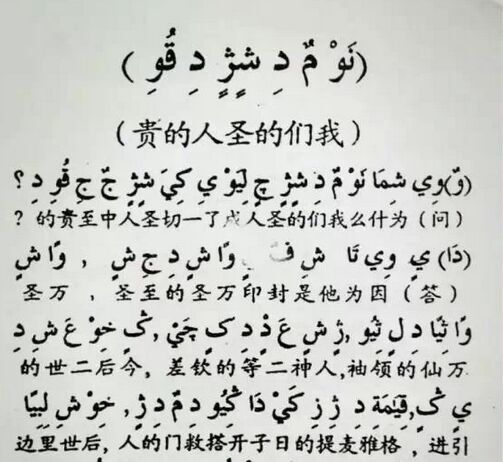 (نَوْ مٌ دِ شٍژٍ دِ قُوِ)
(我们的圣人的贵)
(وٌ) وِي شِمَا نَوْ مٌ دِ شٍژٍ چٍ لِيَوْ يِ کِيَ شٍژٍ جٌ جِ قُوِ دِ ؟
(问)为什么我们的圣人成了一切圣人中至贵的?
(دَا) يٍ وِي تَا شِ وًا شٍ دِ جِ شٍ , وًا شٍ
(答)因为他是封印万圣的至圣,万圣
وًا ثِيًا دِ لٍ ثِيُو , ژٍ شٍ عَ دٍ دِ کٍ چَيْ , کٍ خِوْ عَ شِ دِ
万仙的领袖,人神二等的钦差,今后二世的
يٍ کٍ, قِيٰمَة دِ ژِ زِ کَيْ دَا کِيُو مٌ دِ ژٍ, خِوْ شِ لِيبِيَا
引进,格雅麦提的日子开搭救门的人,后世里边